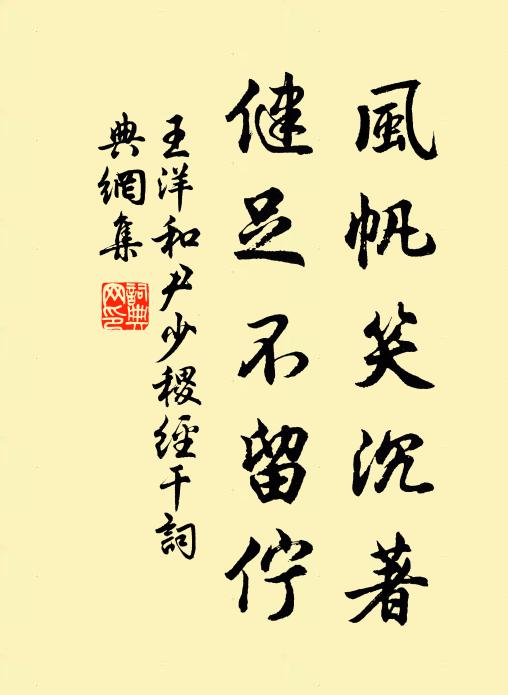 風帆笑沉著
健足不留佇
王洋和尹少稷經干詞
典網集
詞典
网印